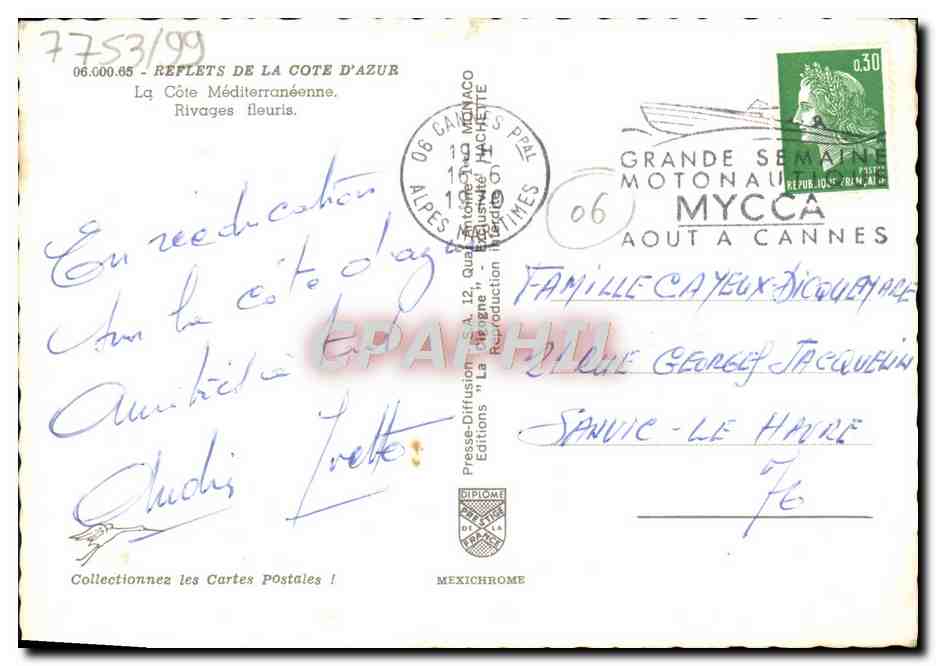 7753/99
06.000.65 - REFLETS DE LA COTE D'AZUR
La Côte Méditerranéenne.
Rivages fleuris.
En rééducation
sur la côte d'azur
Amitié à tous
André Yvette
Collectionnez les Cartes Postales !
Presse-Diffusion S.A. 12, Quai Antoine-1er MONACO
Editions "La Cigogne" - Exclusivité HACHETTE
Reproduction interdite
DIPLOME
PRESTIGE
DE LA
FRANCE
MEXICHROME
06 CANNES PPAL
19 H
16 6
19 9
ALPES MARITIMES
06
0,30
POSTES
REPUBLIQUE FRANÇAISE
GRANDE SEMAINE
MOTONAUTIQUE
MYCCA
AOUT A CANNES
FAMILLE CAYEUX-DICQUEMARE
21 RUE GEORGES JACQUELIN
SANVIC - LE HAVRE
76
CPAPHIL